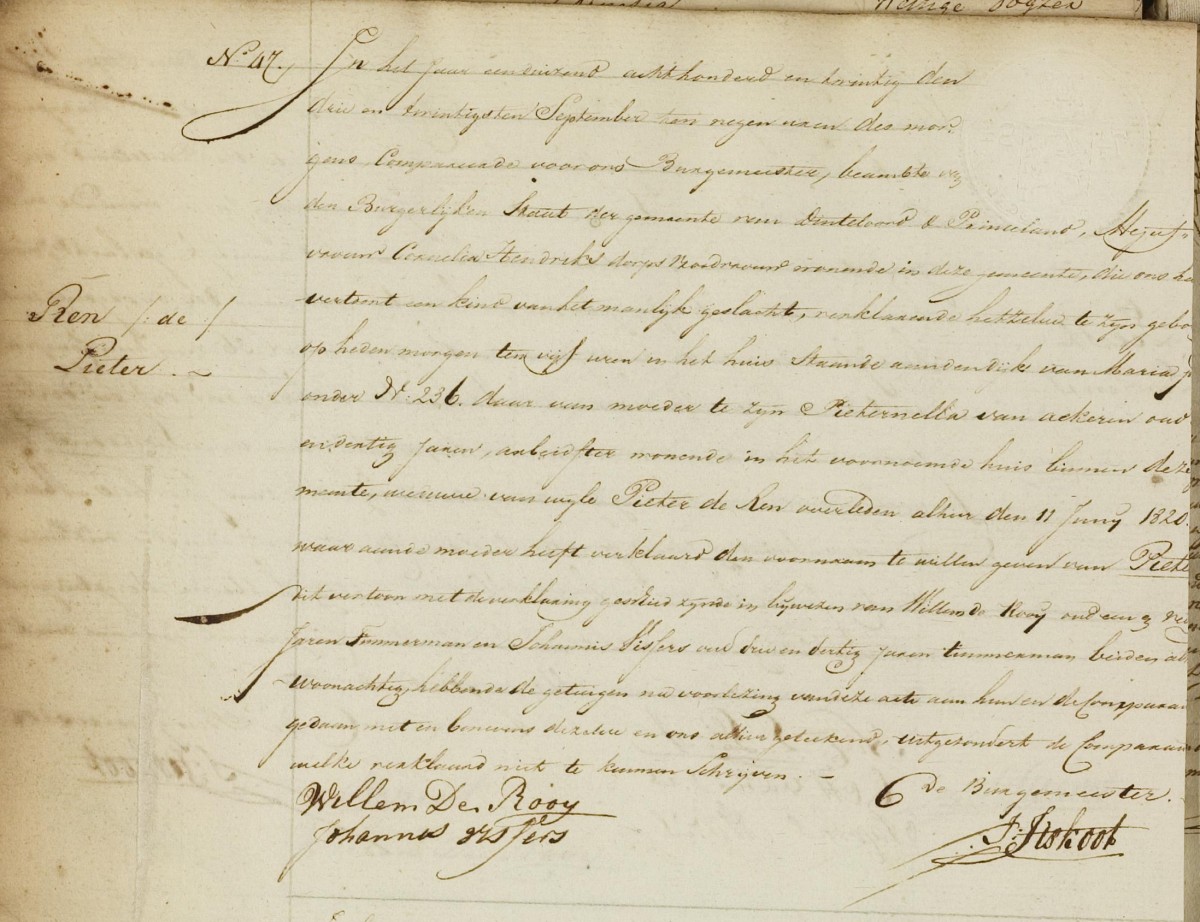 No 47. In het Jaar eenduizend achthonderd en twintig den
drie en twintigsten September ten negen uren des mor-
gens Compareerde voor ons Burgemeester, beambte van
den Burgerlijken Staat der gemeente van Dinteloord & Princeland, Mejuf-
vrouw Cornelia Hendriks dorps Vroedvrouw wonende in deze gemeente, die ons he
vertoont een kind van het manlijk geslacht, verklarende hetzelve te zijn gebo
Ren /: de /
op heden morgen ten vijf uren in het huis Staande aan den dijk van Maria
Pieter. ~
onder No 236. daar van moeder te zijn Pieternella van Ackeren oud
en dertig Jaren, arbeidster wonende in het voornoemde huis binnen deze
meente, weduwe van wyle Pieter de Ren overleden alhier den 11 Juny 1820.
waar aan de moeder heeft verklaard den voornaam te willen geven van Piete
dit vertoon met de verklaring geschied zynde in bywezen van Willem de Rooy oud een &
Jaren Timmerman en Johannis Vissers oud drie en dertig Jaren timmerman, beiden al
woonachtig, hebbende de getuigen na voorlezing van deze acte aan hun en de Comparan
gedaan met en benevens dezelve en ons alhier geteekend, uitgezonderd de Comparan
welke verklaard niet te kunnen Schrijven. ~
Willem De Rooy
de Burgemeester.
Johannes Vissers